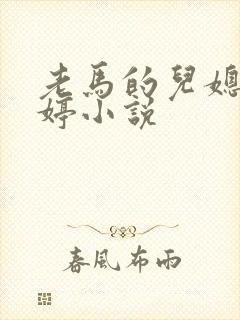 老馬的兒媳
婷小說
春風布雨